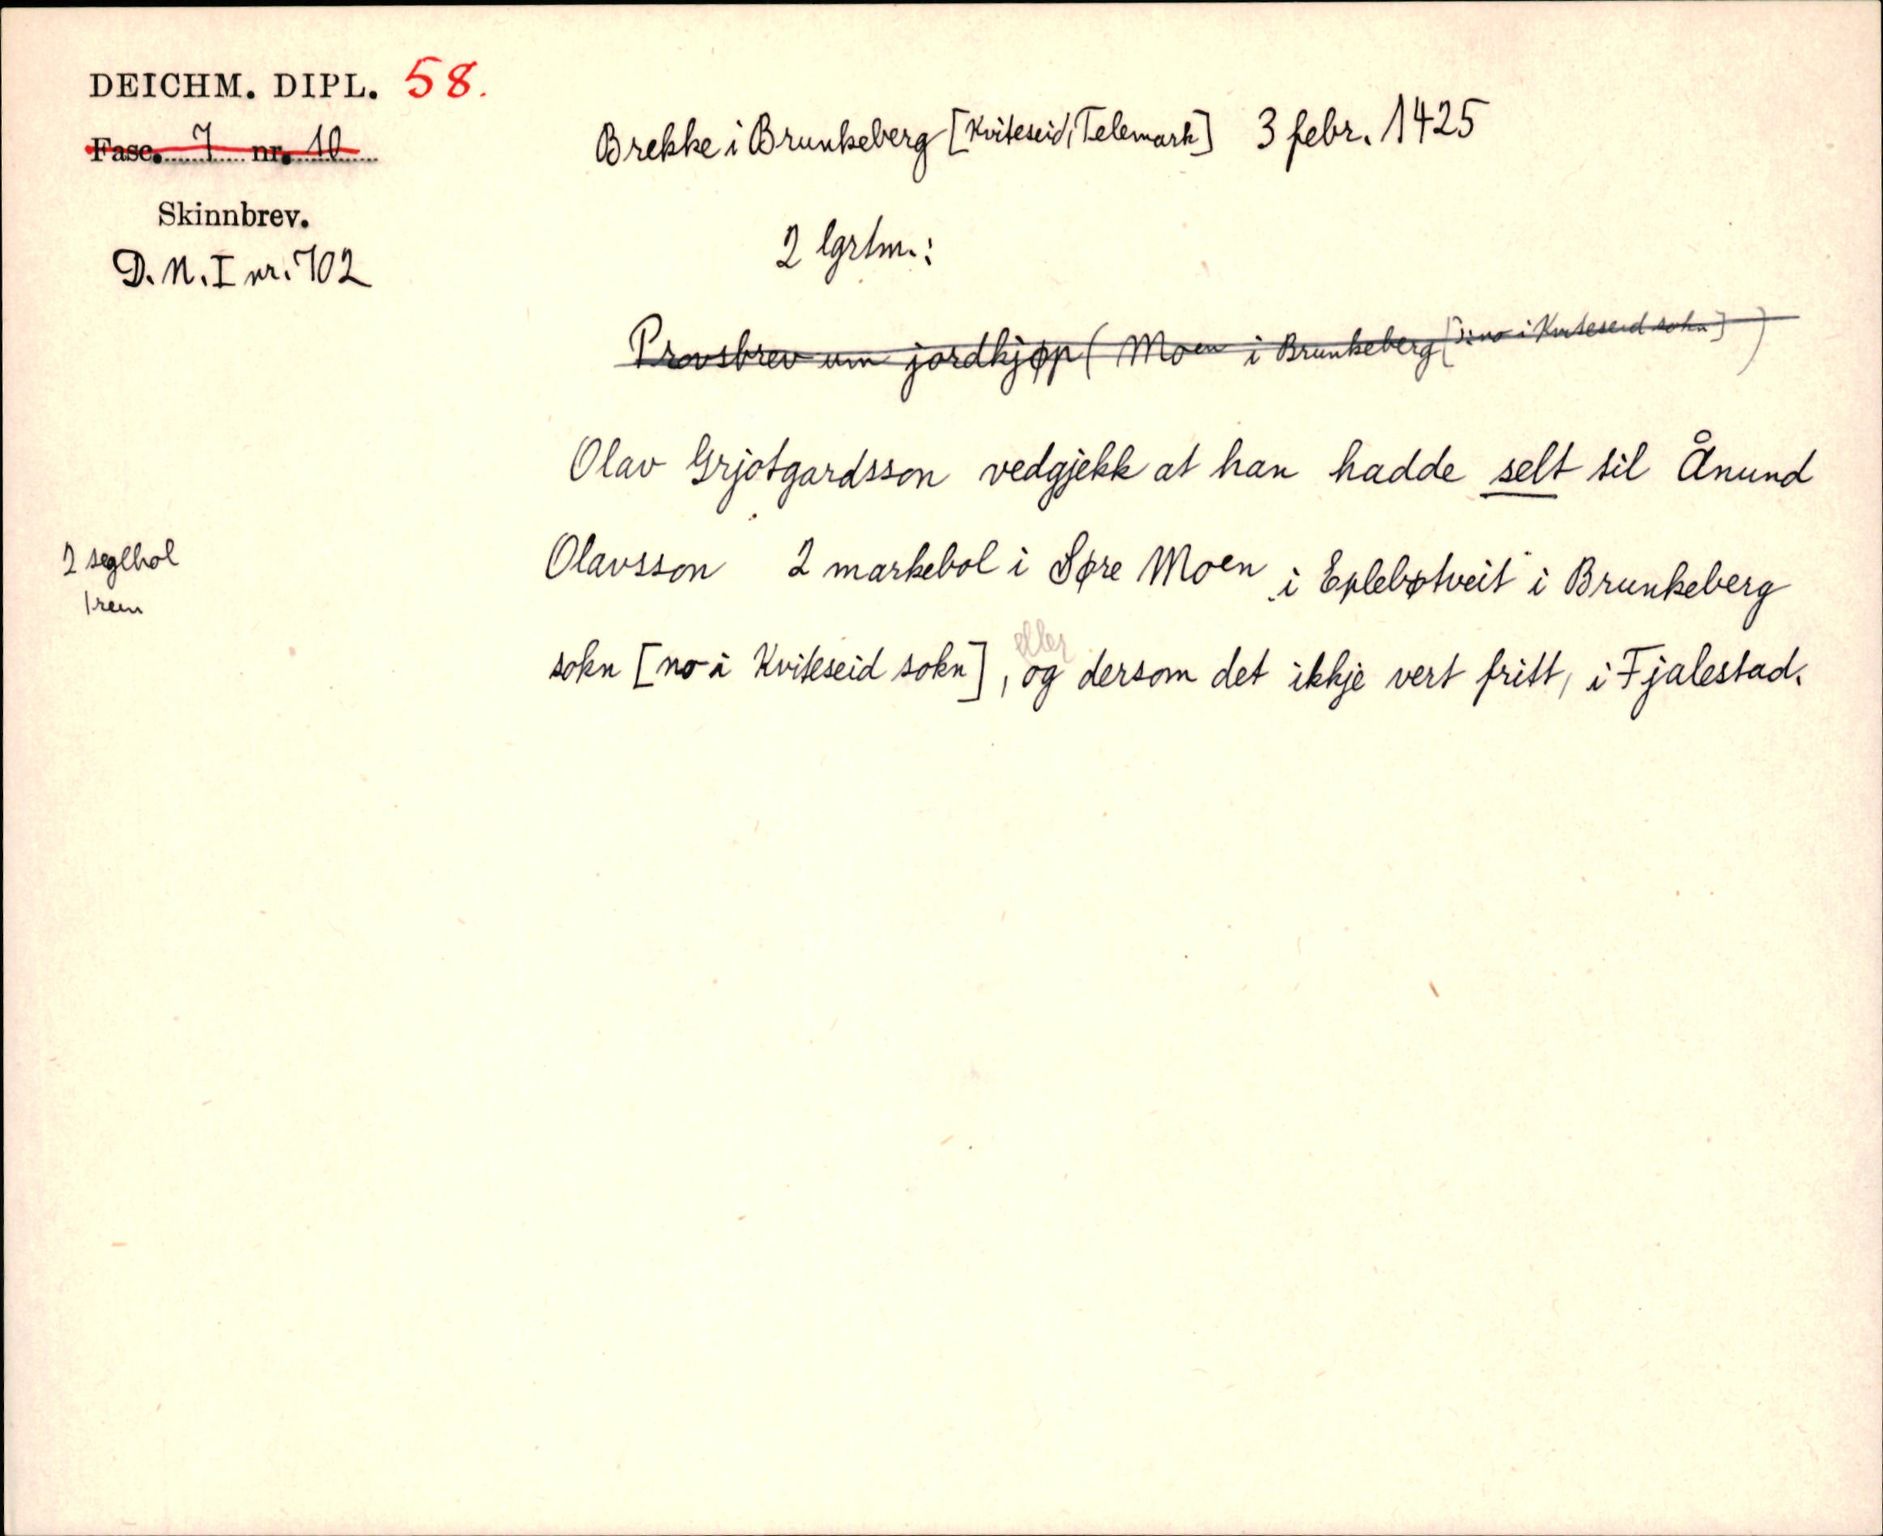 DEICHM. DIPL. 58.
Fasc. 7 nr. 10
Skinnbrev.
D.N. I nr. 702
Brekke i Brunkeberg [Kviteseid, Telemark] 3 febr. 1425
2 lgrtm.:
Provsbrev um jordkjøp (Moen i Brunkeberg [ɔ: no i Kviteseid sokn])
Olav Grjotgardsson vedgjekk at han hadde selt til Ånund
Olavsson 2 markebol i Søre Moen i Eplebøtveit i Brunkeberg
eller
sokn [no i Kviteseid sokn], og dersom det ikkje vert fritt, i Fjalestad.
2 seglhol
1 reim